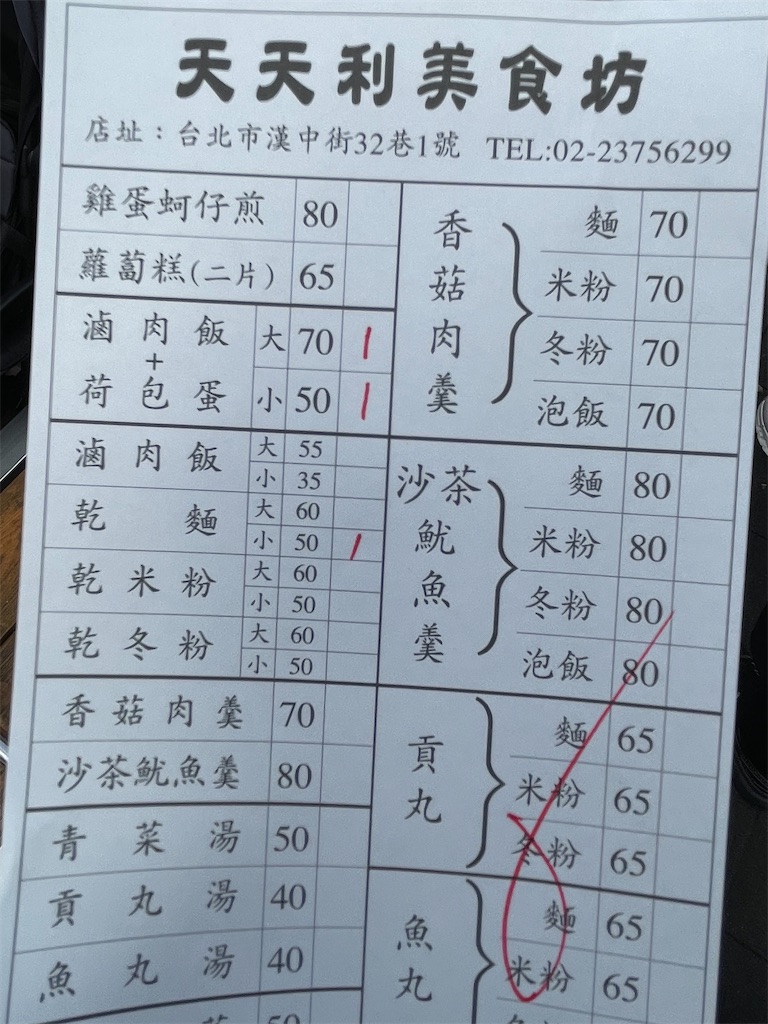 天天利美食坊
店址：台北市漢中街32巷1號 TEL:02-23756299
雞蛋蚵仔煎 80
蘿蔔糕(二片) 65
滷肉飯+荷包蛋 大 70 1
小 50 1
滷肉飯 大 55
小 35
乾麵 大 60
小 50 1
乾米粉 大 60
小 50
乾冬粉 大 60
小 50
香菇肉羹 70
沙茶魷魚羹 80
青菜湯 50
貢丸湯 40
魚丸湯 40
50
香菇肉羹
麵 70
米粉 70
冬粉 70
泡飯 70
沙茶魷魚羹
麵 80
米粉 80
冬粉 80
泡飯 80
貢丸
麵 65
米粉 65
冬粉 65
魚丸
麵 65
米粉 65